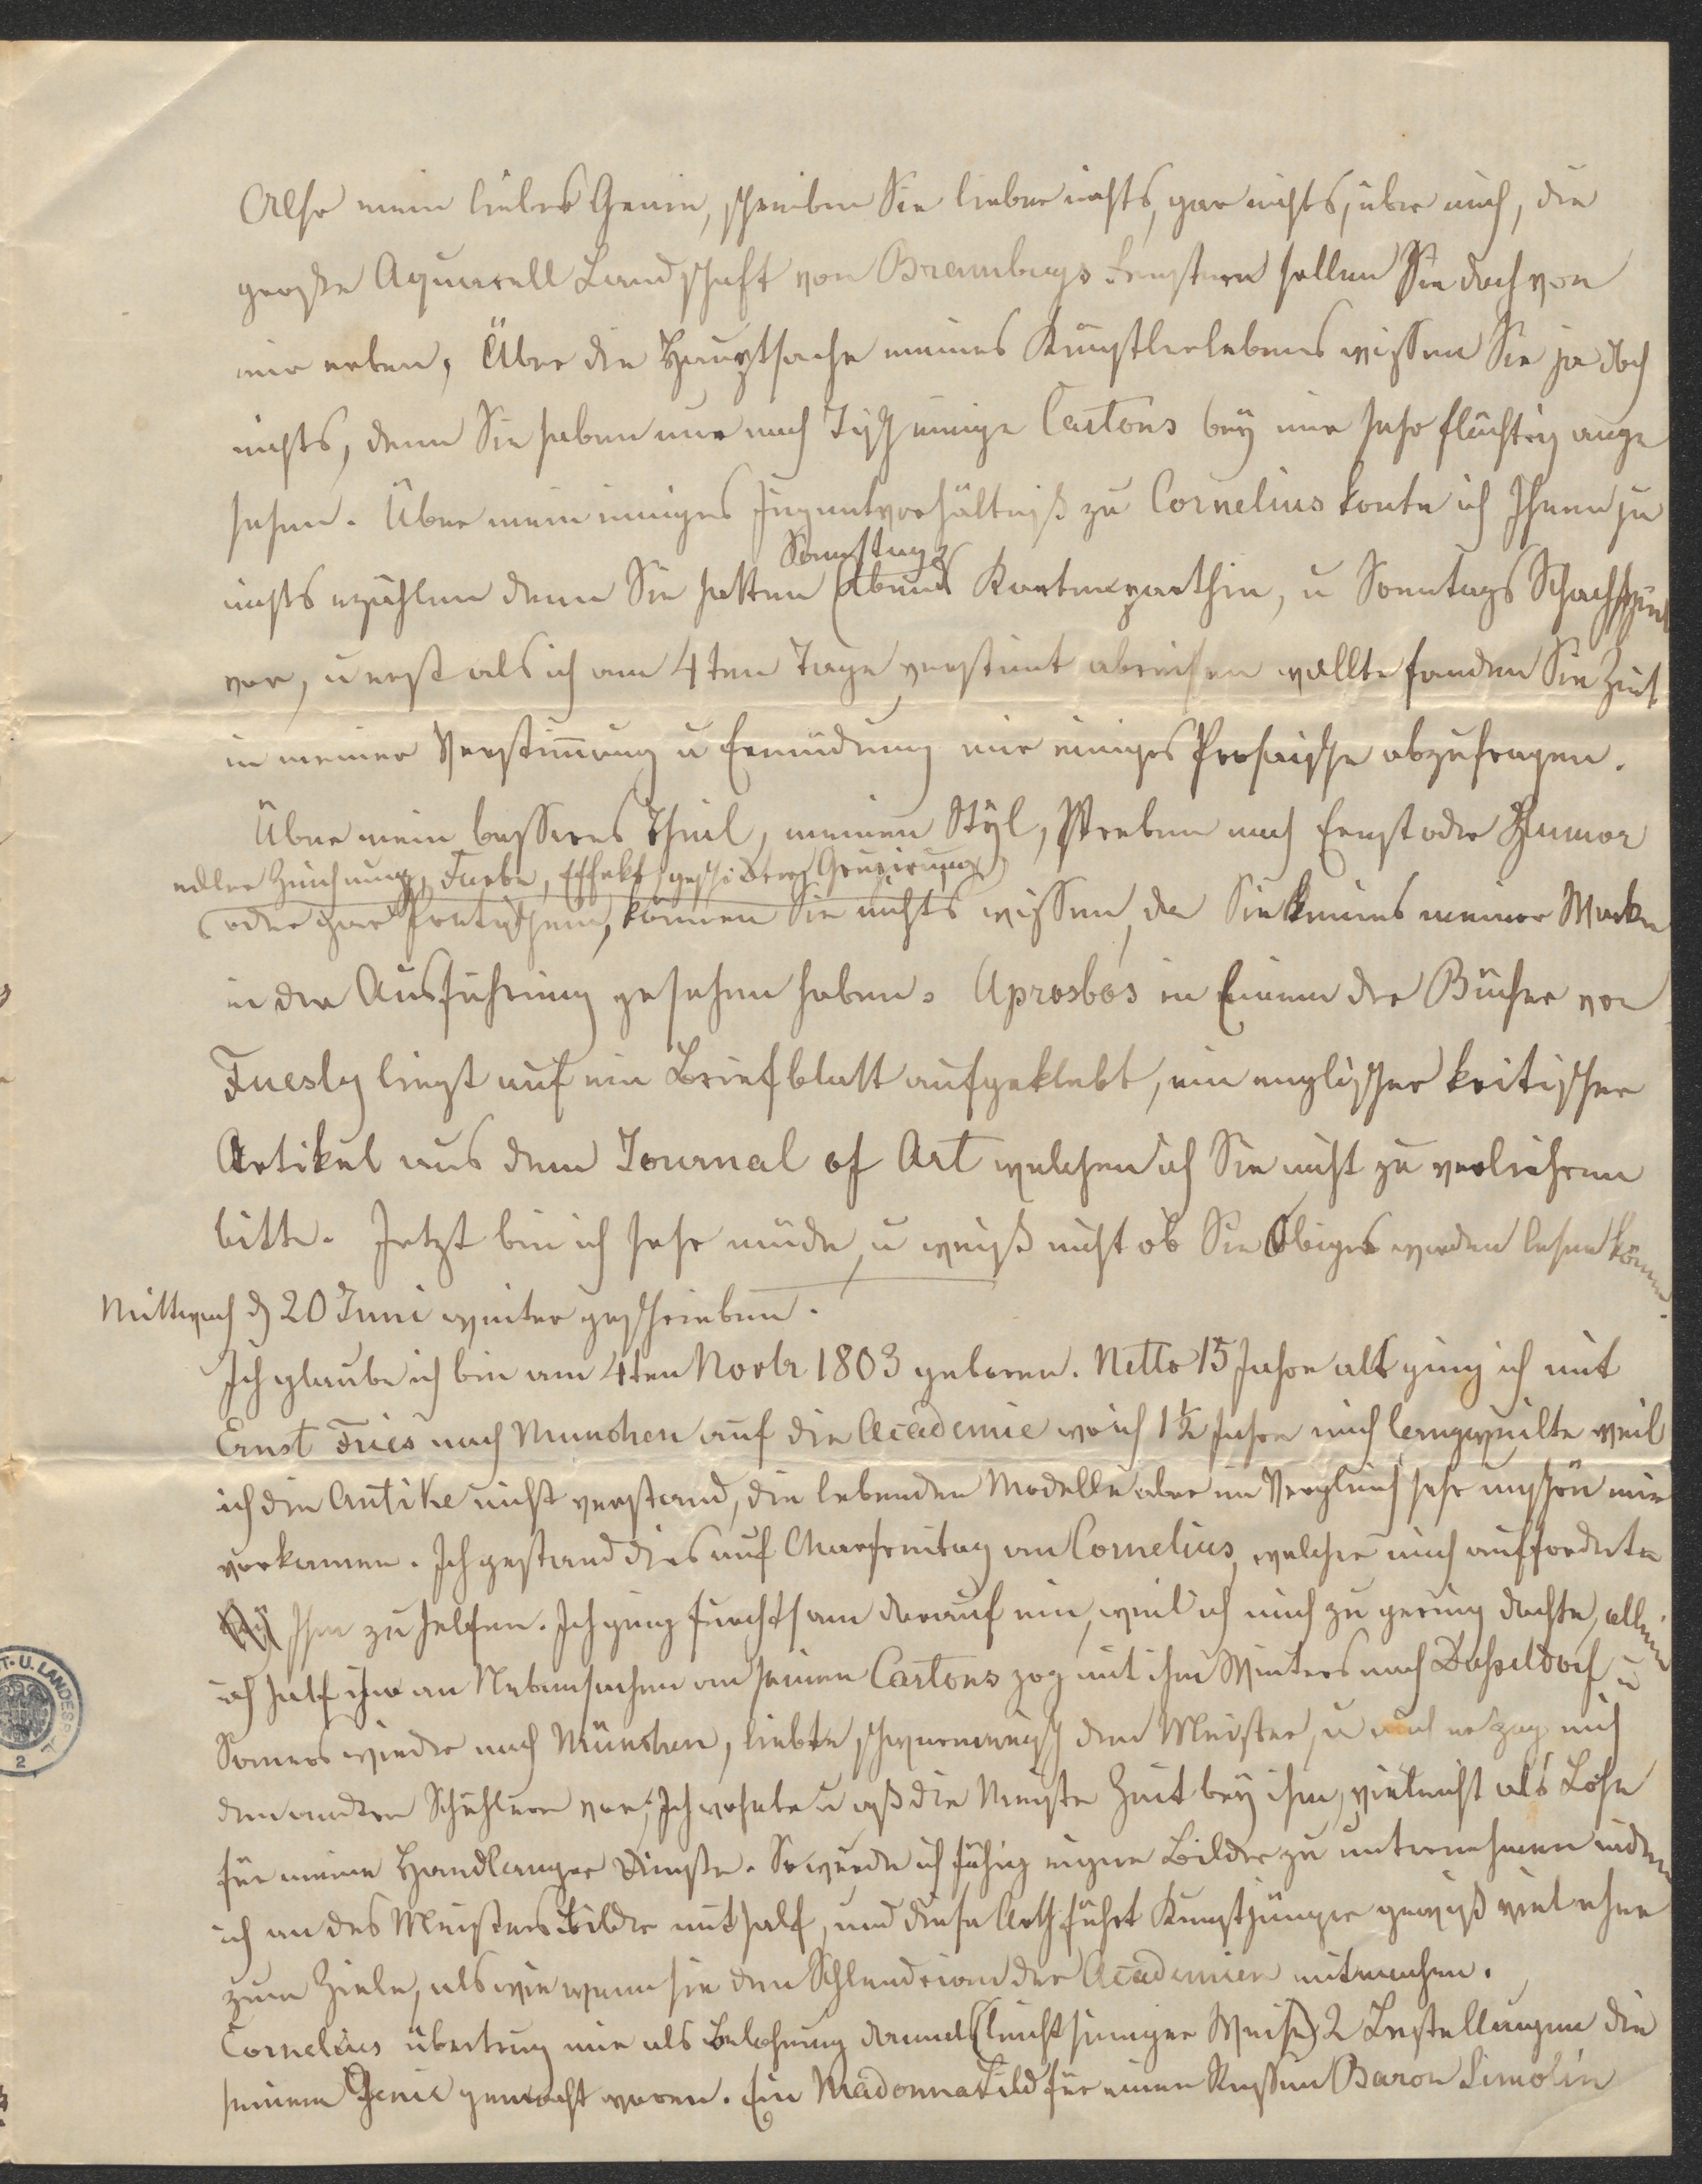 Also mein liebes Genie, schreiben Sie lieber nichts, gar nichts, über mich, die
große Aquarell Landschaft von Bramburgs Fenstern sollen Sie doch von
mir erben, Über die Hauptsache meines Künstlerlebens wissen Sie ja doch
nichts, denn Sie haben nur nach Tisch einige Cartons bey mir sehr flüchtig ange
sehen. Über mein inniges Jugentverhältniß zu Cornelius konte ich Ihnen ja
Samstags
nichts erzählen denn Sie hatten Abends Kartenparthie, u Sonntags Schachspiel
vor, u erst als ich am 4ten Tage verstimt abreisen wollte fanden Sie Zeit
in meiner Verstimmung u Ermüdung mir einiges Prosaische abzufragen.
Über mein besseres Theil, meinen Styl, Streben nach Ernst oder Humor
edler Zeichnung, Farbe, Effekt, geschickter Grupirung
oder gar Poetischem, können Sie nichts wissen, da Sie keines meiner Werke
in der Ausführung gesehen haben. Aprosbos in Einem der Bücher von
Fuesly liegt auf ein Briefblatt aufgeklebt, ein englischer kritischer
Artikel aus dem Journal of Art welchen ich Sie nicht zu verliehren
bitte. Jetzt bin ich sehr müde, u weiß nicht ob Sie Obiges werden lesen können.
Mittwoch d 20 Juni weiter geschrieben.
Ich glaube ich bin am 4ten Novbr 1803 geboren. Netto 15 Jahre alt ging ich mit
Ernst Fries nach Munchen auf die Academie wo ich 1½ Jahre mich langweilte weil
ich die Antike nicht verstand, die lebenden Modelle aber im Vergleich sehr unschön mir
vorkamen. Ich gestand dies auf Charfreitag an Cornelius, welcher mich aufforderte
Ihm zu helfen. Ich ging furchtsam darauf ein, weil ich mich zu gering dachte, allein
ich half ihm an Nebensachen an seinen Cartons zog mit ihm Winters nach Dusseldorf u
Somers wieder nach München, liebte schwermerisch den Meister, u auch er zog mich
den andren Schühlern vor, Ich wohnte u aß die Meiste Zeit bey ihm, vieleicht als Lohn
für meine Handlanger Dienste. So wurde ich fähig eigne Bilder zu unternehmen indem
ich an des Meisters Bilder mithalf, und diese Arth führt Kunstjünger gewiß viel eher
zum Ziele, als wie wenn sie den Schlendrian der Academien mitmachen.
Cornelius übertrug mir als Belohnung damals (leichtsinniger Weise) 2 Bestellungen die
seinem Genie gemacht waren. Ein Madonnabild für einen Russen Baron Simolin